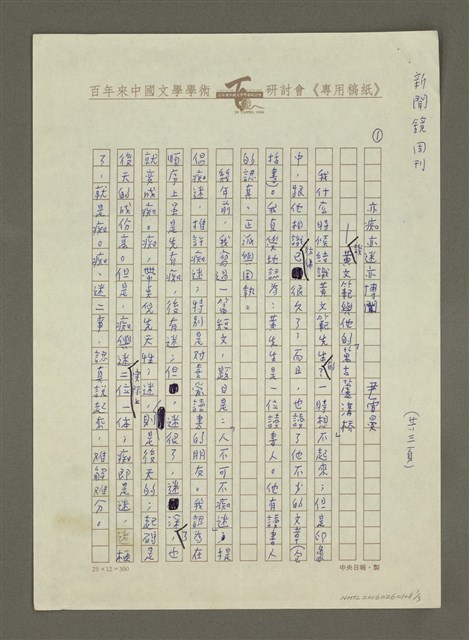 百年來中國文學學術研討會《專用稿紙》
新聞鏡周刊
(共三頁)
①
亦痴亦迷亦博聞 尹雪曼
—談黃文範與他的「萬古蘆溝橋」
我什麼時候結識黃文範先生的?一時想不起來;但是印象
中,跟他相識已很久了;而且,也讀了他不少的文章(含
書)。我直覺地認為:黃先生是一位讀書人。他有讀書人
的認真、正派與固執。
幾年前,我寫過一篇短文,題目是:「人不可不痴迷」提
倡痴迷,推許痴迷;特別是對喜愛讀書的朋友。我認為在
順序上雖是先有痴,後有迷;但,迷很了,迷深了,也
就變成痴。痴,帶點先天性;迷,則是後天的;起碼是
後天的成份重。但是,痴與迷實際上二位一體;痴即是迷,迷極
了,就是痴。痴、迷二事,認真說起來,難解難分。
25×12=300
中央日報·製